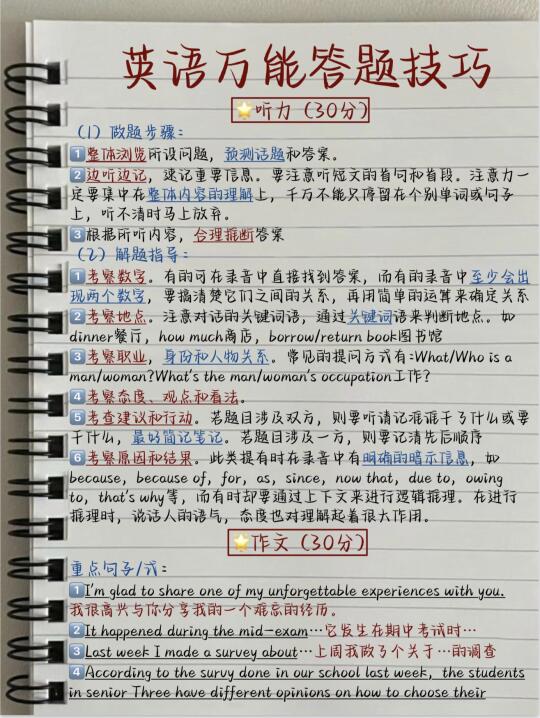 英语万能答题技巧
⭐听力（30分）
（1）做题步骤：
1整体浏览所设问题，预测话题和答案。
2边听边记，速记重要信息。要注意听短文的首句和首段。注意力一
定要集中在整体内容的理解上，千万不能只停留在个别单词或句子
上，听不清时马上放弃。
3根据所听内容，合理推断答案
（2）解题指导：
1考察数字。有的可在录音中直接找到答案，而有的录音中至少会出
现两个数字，要搞清楚它们之间的关系，再用简单的运算来确定关系
2考察地点。注意对话的关键词语，通过关键词语来判断地点。如
dinner餐厅，how much商店，borrow/return book图书馆
3考察职业，身份和人物关系。常见的提问方式有:What/Who is a
man/woman?What's the man/woman's occupation工作?
4考察态度、观点和看法。
5考查建议和行动。若题目涉及双方，则要听请记谁谁干了什么或要
干什么，最好简记笔记。若题目涉及一方，则要记清先后顺序
6考察原因和结果。此类提有时在录音中有明确的暗示信息，如
because, because of, for, as, since, now that, due to, owing
to, that's why等，而有时却要通过上下文来进行逻辑推理。在进行
推理时，说话人的语气，态度也对理解起着很大作用。
⭐作文（30分）
重点句子/式：
1I'm glad to share one of my unforgettable experiences with you.
我很高兴与你分享我的一个难忘的经历。
2It happened during the mid-exam…它发生在期中考试时…
3Last week I made a survey about…上周我做了个关于…的调查
4According to the survy done in our school last week, the students
in senior Three have different opinions on how to choose their